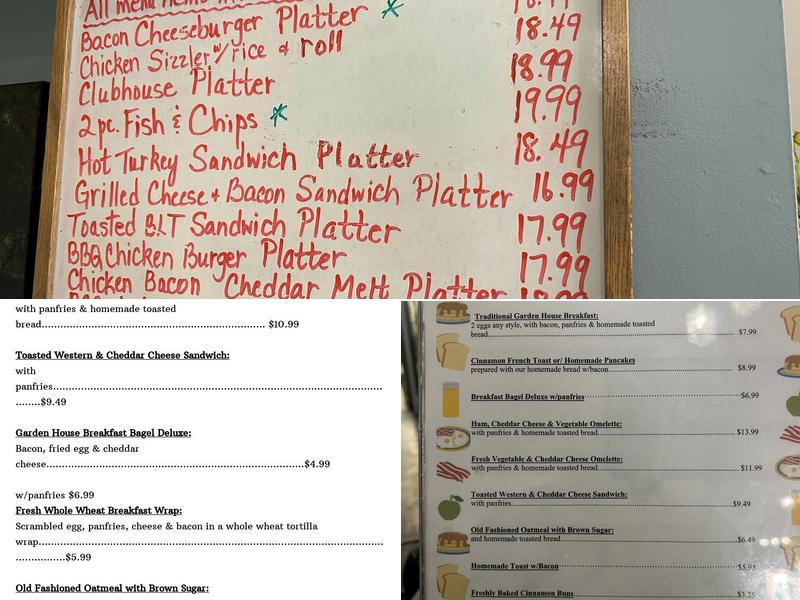 All menu items
Bacon Cheeseburger Platter *
Chicken Sizzler w/rice & roll 18.49
Clubhouse Platter 18.99
2pc. Fish & Chips * 19.99
Hot Turkey Sandwich Platter 18.49
Grilled Cheese + Bacon Sandwich Platter 16.99
Toasted BLT Sandwich Platter 17.99
BBQ Chicken Burger Platter 17.99
Chicken Bacon Cheddar Melt Platter 18.99
with panfries & homemade toasted
bread.................................................................. $10.99
Toasted Western & Cheddar Cheese Sandwich:
with
panfries.................................................................................................
........$9.49
Garden House Breakfast Bagel Deluxe:
Bacon, fried egg & cheddar
cheese............................................................................$4.99
w/panfries $6.99
Fresh Whole Wheat Breakfast Wrap:
Scrambled egg, panfries, cheese & bacon in a whole wheat tortilla
wrap.....................................................................................................
...............$5.99
Old Fashioned Oatmeal with Brown Sugar:
Traditional Garden House Breakfast:
2 eggs any style, with bacon, panfries & homemade toasted
bread.................................................................................$7.99
Cinnamon French Toast or/ Homemade Pancakes
prepared with our homemade bread w/bacon.....................................$8.99
Breakfast Bagel Deluxe w/panfries............................................$6.99
Ham, Cheddar Cheese & Vegetable Omelette:
with panfries & homemade toasted bread..........................................$13.99
Fresh Vegetable & Cheddar Cheese Omelette:
with panfries & homemade toasted bread..........................................$11.99
Toasted Western & Cheddar Cheese Sandwich:
with panfries.........................................................................$9.49
Old Fashioned Oatmeal with Brown Sugar:
and homemade toasted bread.........................................................$6.49
Homemade Toast w/Bacon.........................................................$5.95
Freshly Baked Cinnamon Buns......................................................$3.25